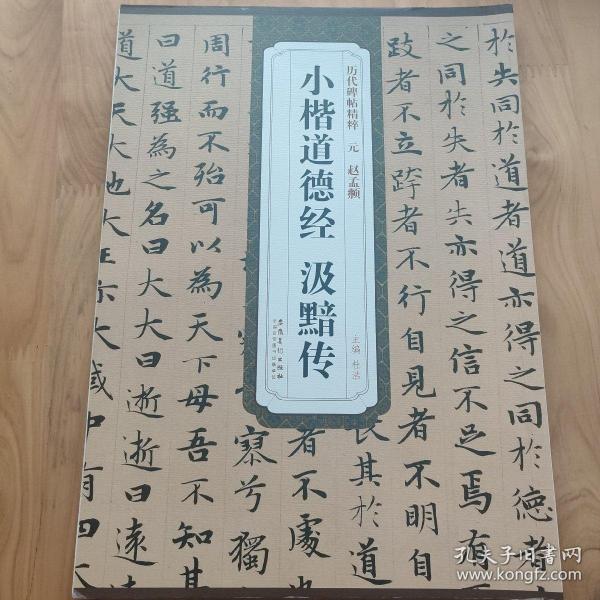 於失同於道者道亦得之同於德者
之同於失者失亦得之信不足焉有
跂者不立跨者不行自見者不明自
長其於道
者不處
寥兮獨
周行而不殆可以為天下母吾不知其
曰道强為之名曰大大曰逝逝曰遠
道大天大地大王亦大域中有四大
历代碑帖精粹 元 赵孟頫
小楷道德经 汲黯传
主编 杜浩
安徽美术出版社
孔夫子旧书网
www.kongfz.com